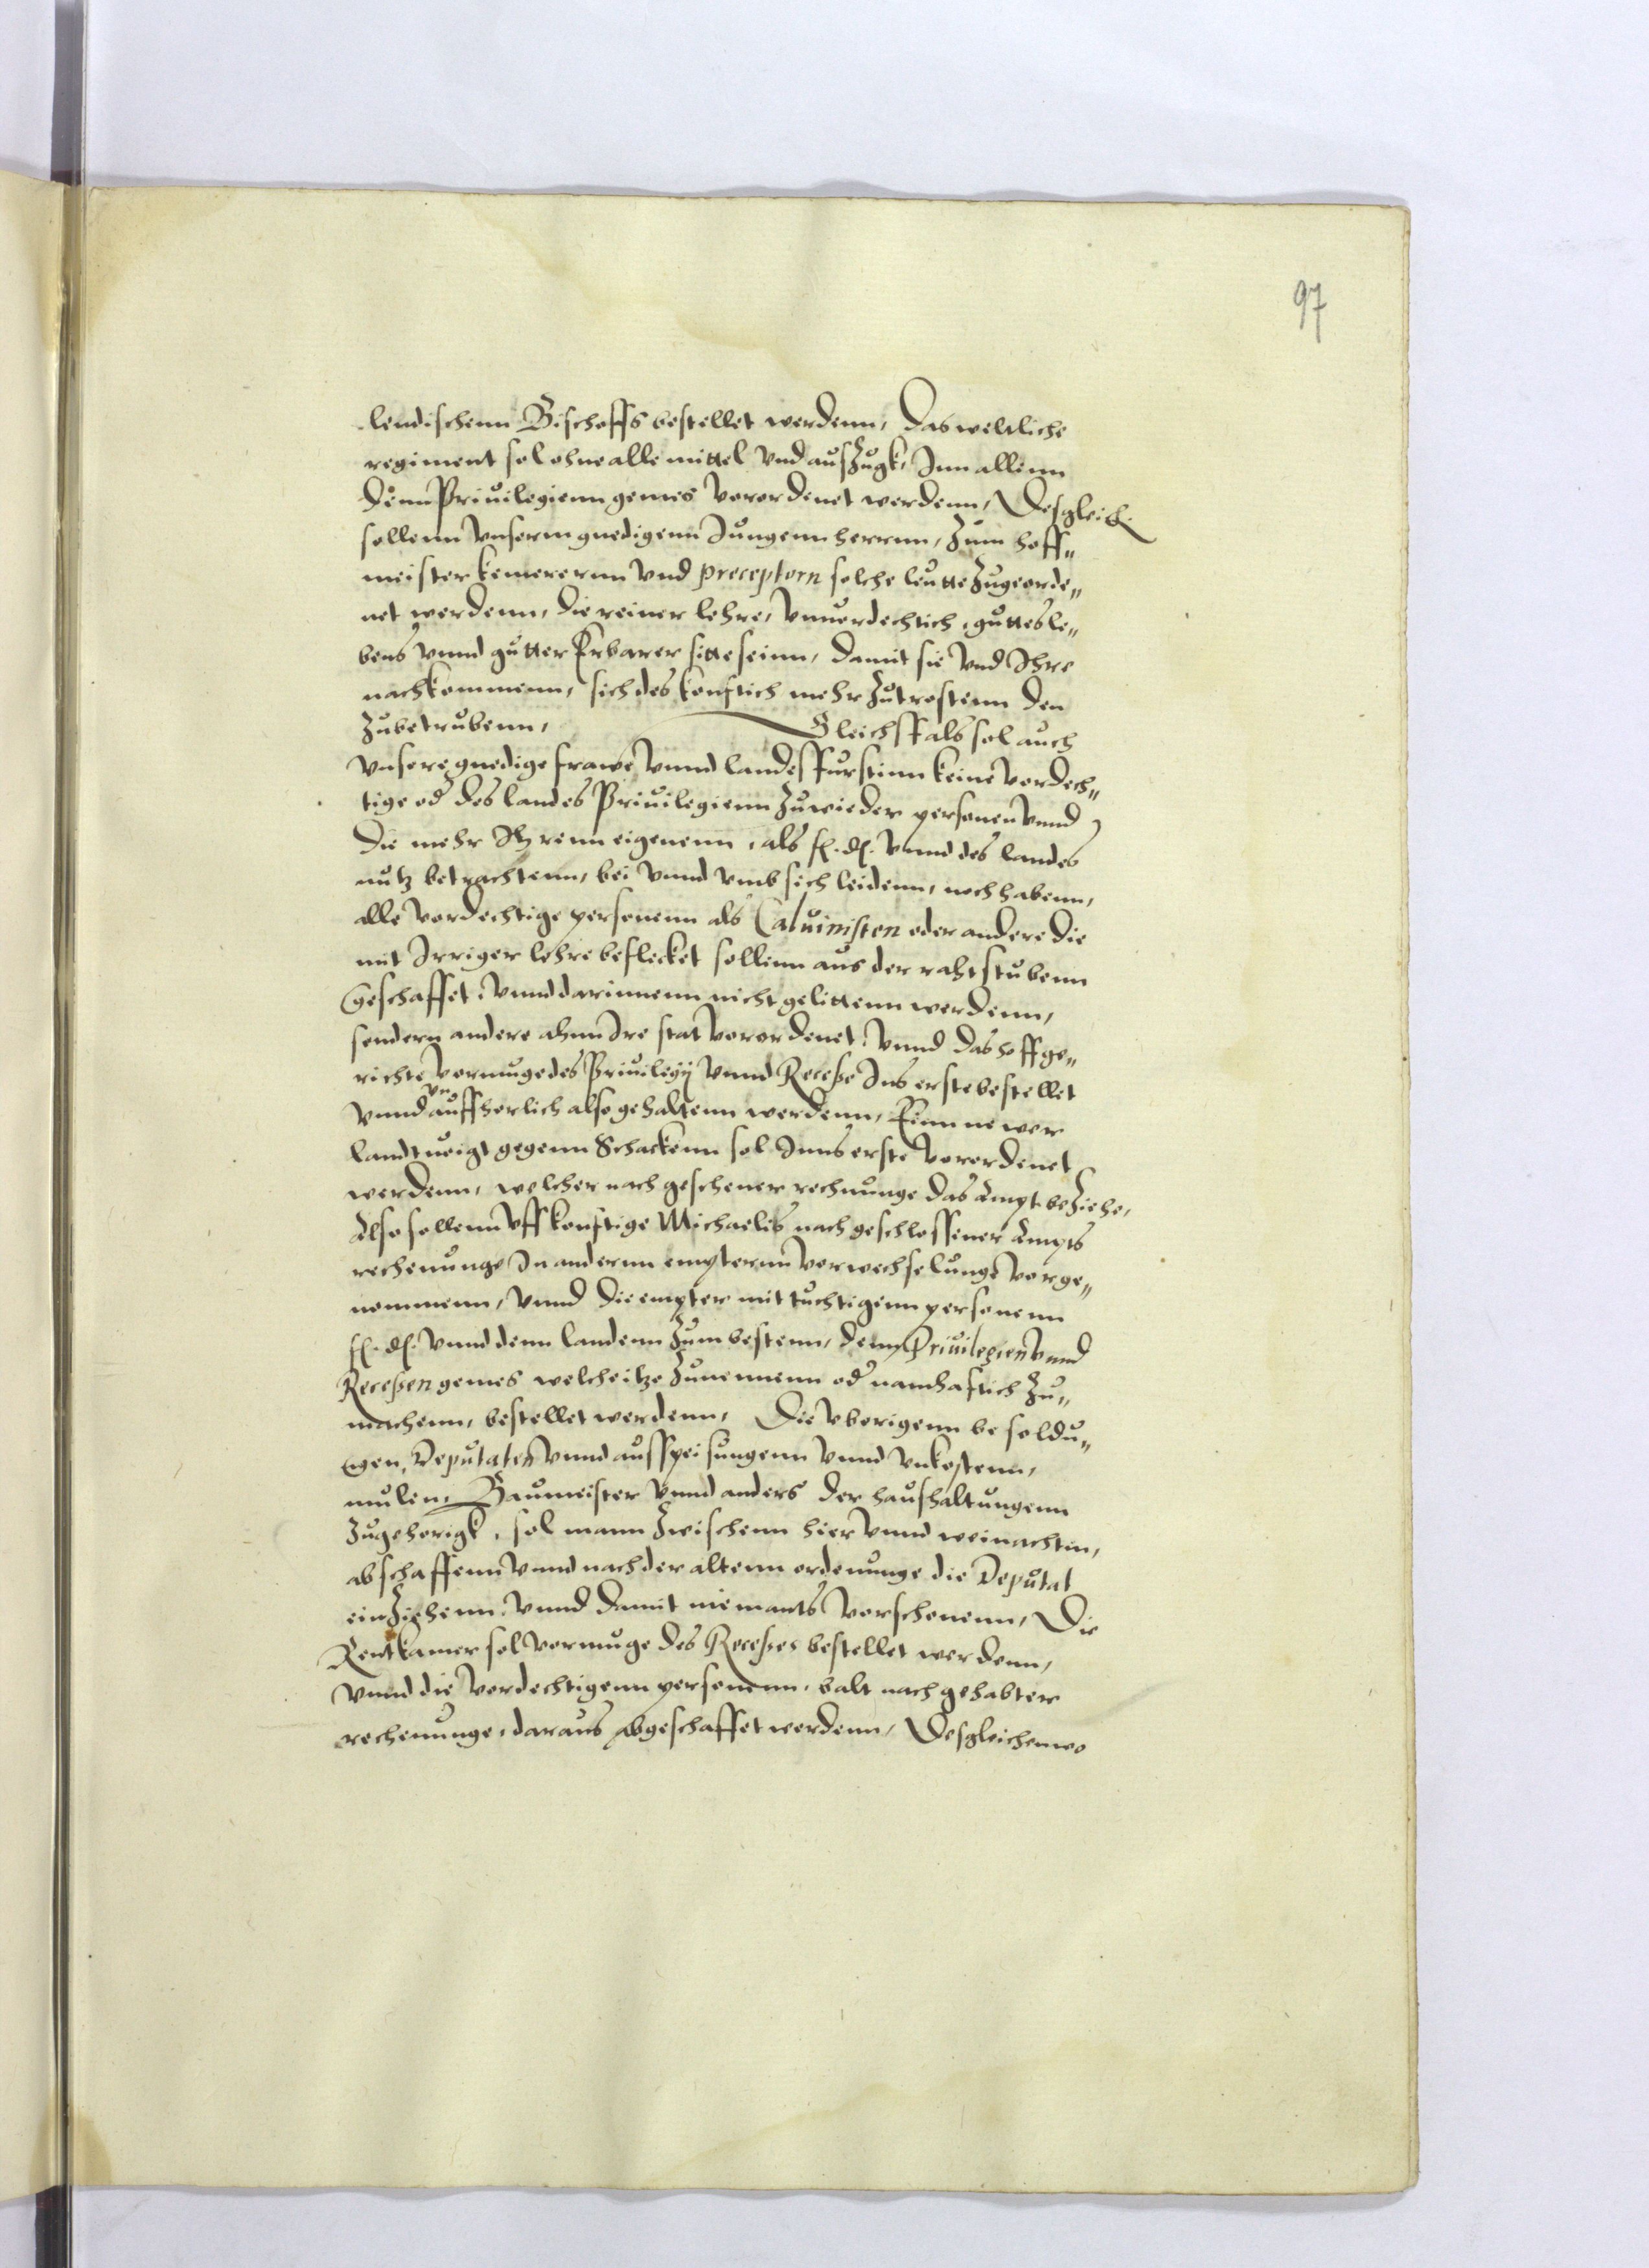 97
lendischenn Bischoffs bestellet werdenn, Das weltliche
regiment sol ohne alle mittel vnd auszugk, Inn allenn
denn Priuilegienn gemes verordenet werdenn, Desgleich.
sollenn vnserm gnedigenn Jungenn herrnn, zum hoff„
meister kemerernn vnd preceptorn solche leutte zugeorde„
net werdenn, die reiner lehre, vnuerdechtich, guttes le„
bens vnnd gutter Erbarer sitte seinn, damit sie vnd Ihre
nachkommenn, sich des konftich mehr zutrostenn den
zubetrubenn, Gleichsfals sol auch
vnsere gnedige frawe vnnd landesfurstinn keine verdech„
tige od des landes Priuilegienn zuwieder personen vnnd
die mehr Ihrenn eigenenn, als f. d. vnnd des landes
nutz betrachtenn, bei vnnd vmb sich leidenn, noch habenn,
alle verdechtige personenn als Caluinisten oder andere die
mit Irriger lehre beflecket sollenn aus der rahtstubenn
Geschaffet, vnnd darinnenn nicht gelittenn werdenn,
sondern andere ahnn Ire stat verordenet, vnnd das hoffge„
richte vermuge des Priuilegij vnnd Receße Ins erste bestellet
vnnd vnauffherlich also gehaltenn werdenn, Einn newer
landtuoigt gegenn Schackenn sol Inns erste verordenet
werdenn, welcher nach geschener rechnunge das Ampt beziehe,
Also sollenn vff konftige Michaelis nach geschlossener Ampts
rechenunge In andernn empternn verwechselunge vorge„
nommenn, vnnd die empter mit tuchtigenn personenn
f. d. vnnd denn landenn zum bestenn, denn Priuilegien vnnd
Receßen gemes welche itzo zunennenn od namhaftich zu„
machenn, bestellet werdenn, Die vberigenn besoldu„
ngen, Deputaten vnnd ausspeisungenn vnnd vnkostenn,
mulen, Baumeister vnnd anders der haushaltungenn
zugehorigk, sol mann zwischenn hier vnnd weinachten,
abschaffenn vnnd nach der altenn ordenunge die Deputat
einziehenn, vnnd damit niemants verschonenn, Die
Rentkamer sol vermuge des Receßes bestellet werdenn,
vnnd die verdechtigenn personenn, balt nach gehabter
rechenunge, daraus abgeschaffet werdenn, Desgleichen wo